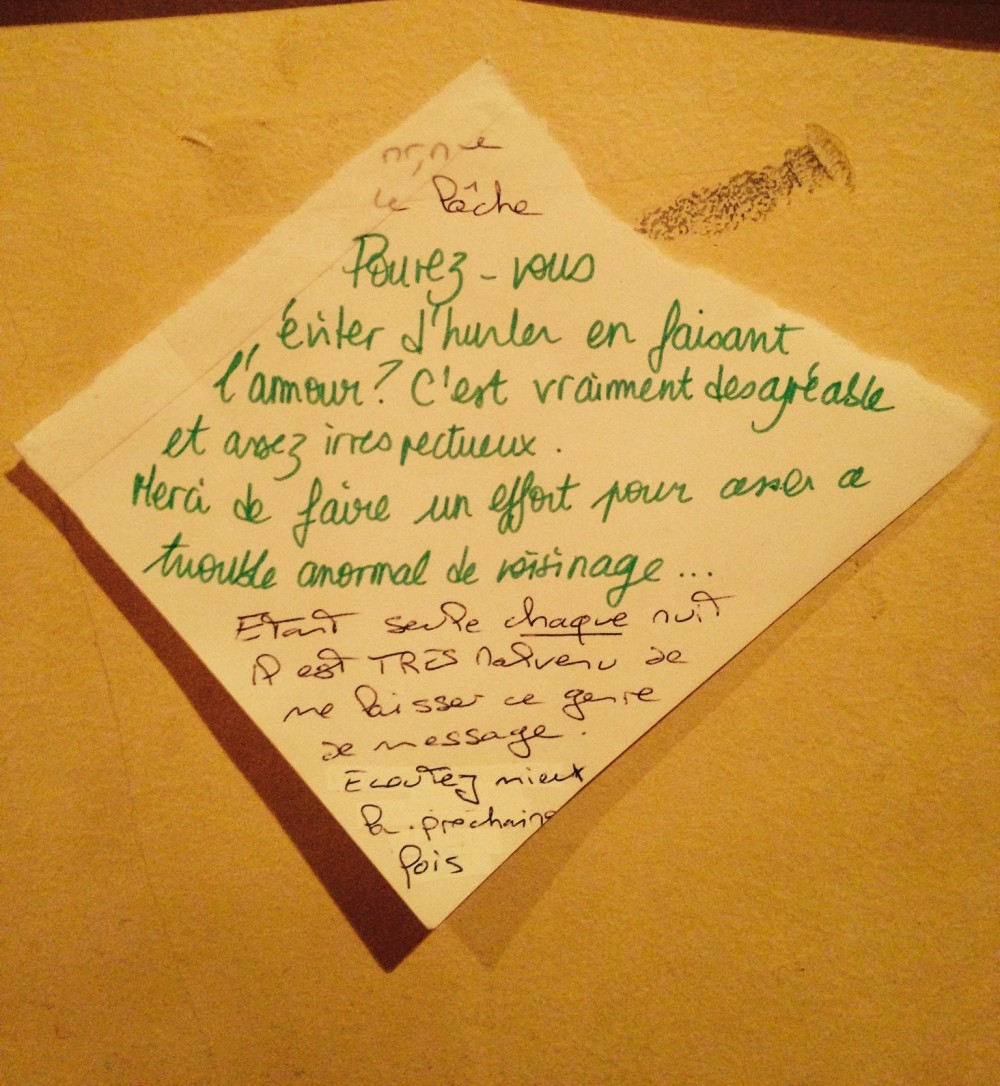 lâche
Pouvez-vous
éviter d'hurler en faisant
l'amour? C'est vraiment desagréable
et assez irrespectueux.
Merci de faire un effort pour cesser ce
trouble anormal de voisinage...
Etant seule chaque nuit
il est TRES malvenu de
me laisser ce genre
de message.
Ecoutez mieux
la prochaine
fois